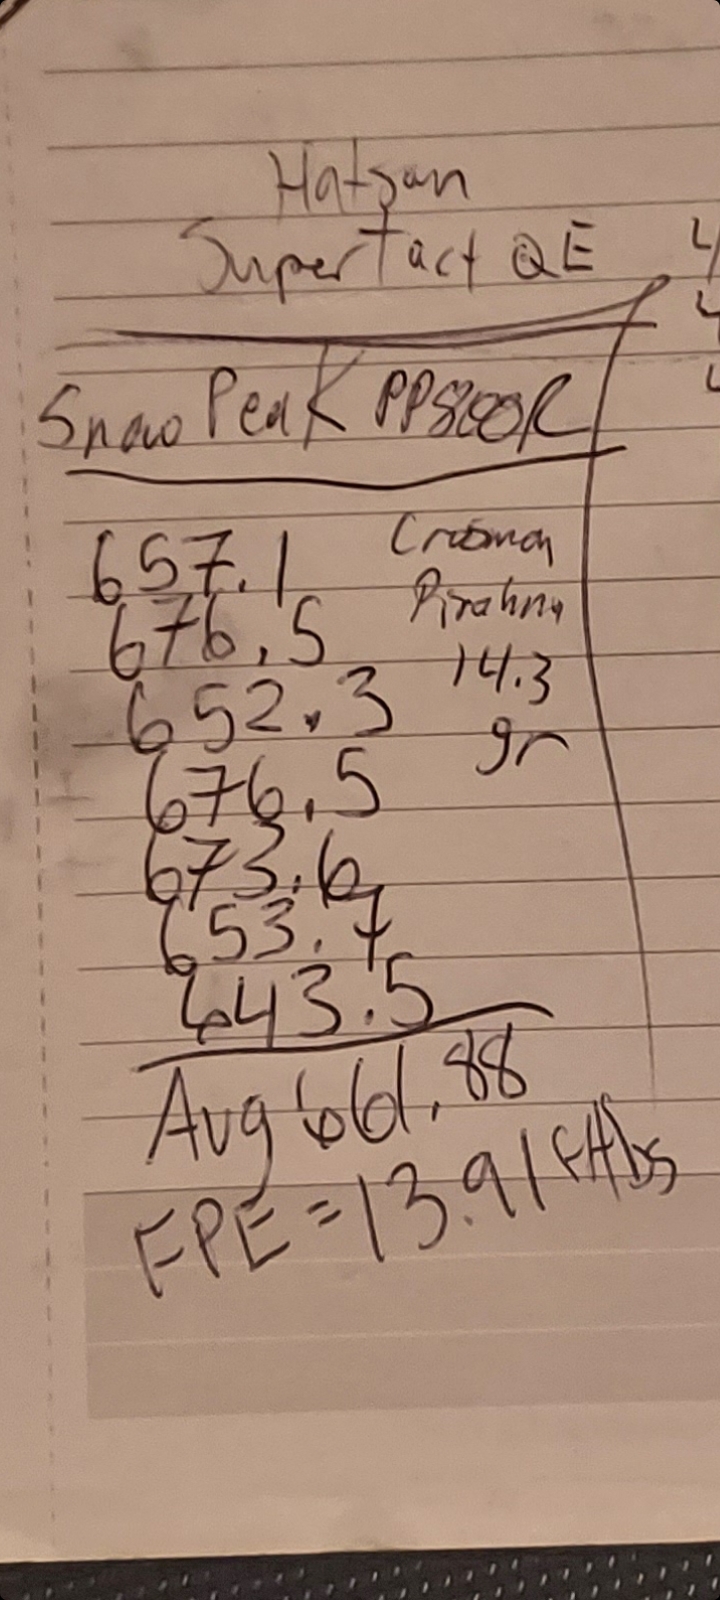 Hatsan
SuperTact QE
Snow Peak PP800R
657.1
Crosman
676.5
Pirahna
652.3
14.3
gr
676.5
673.6
653.7
643.5
Avg 661.88
FPE = 13.91 ftlbs